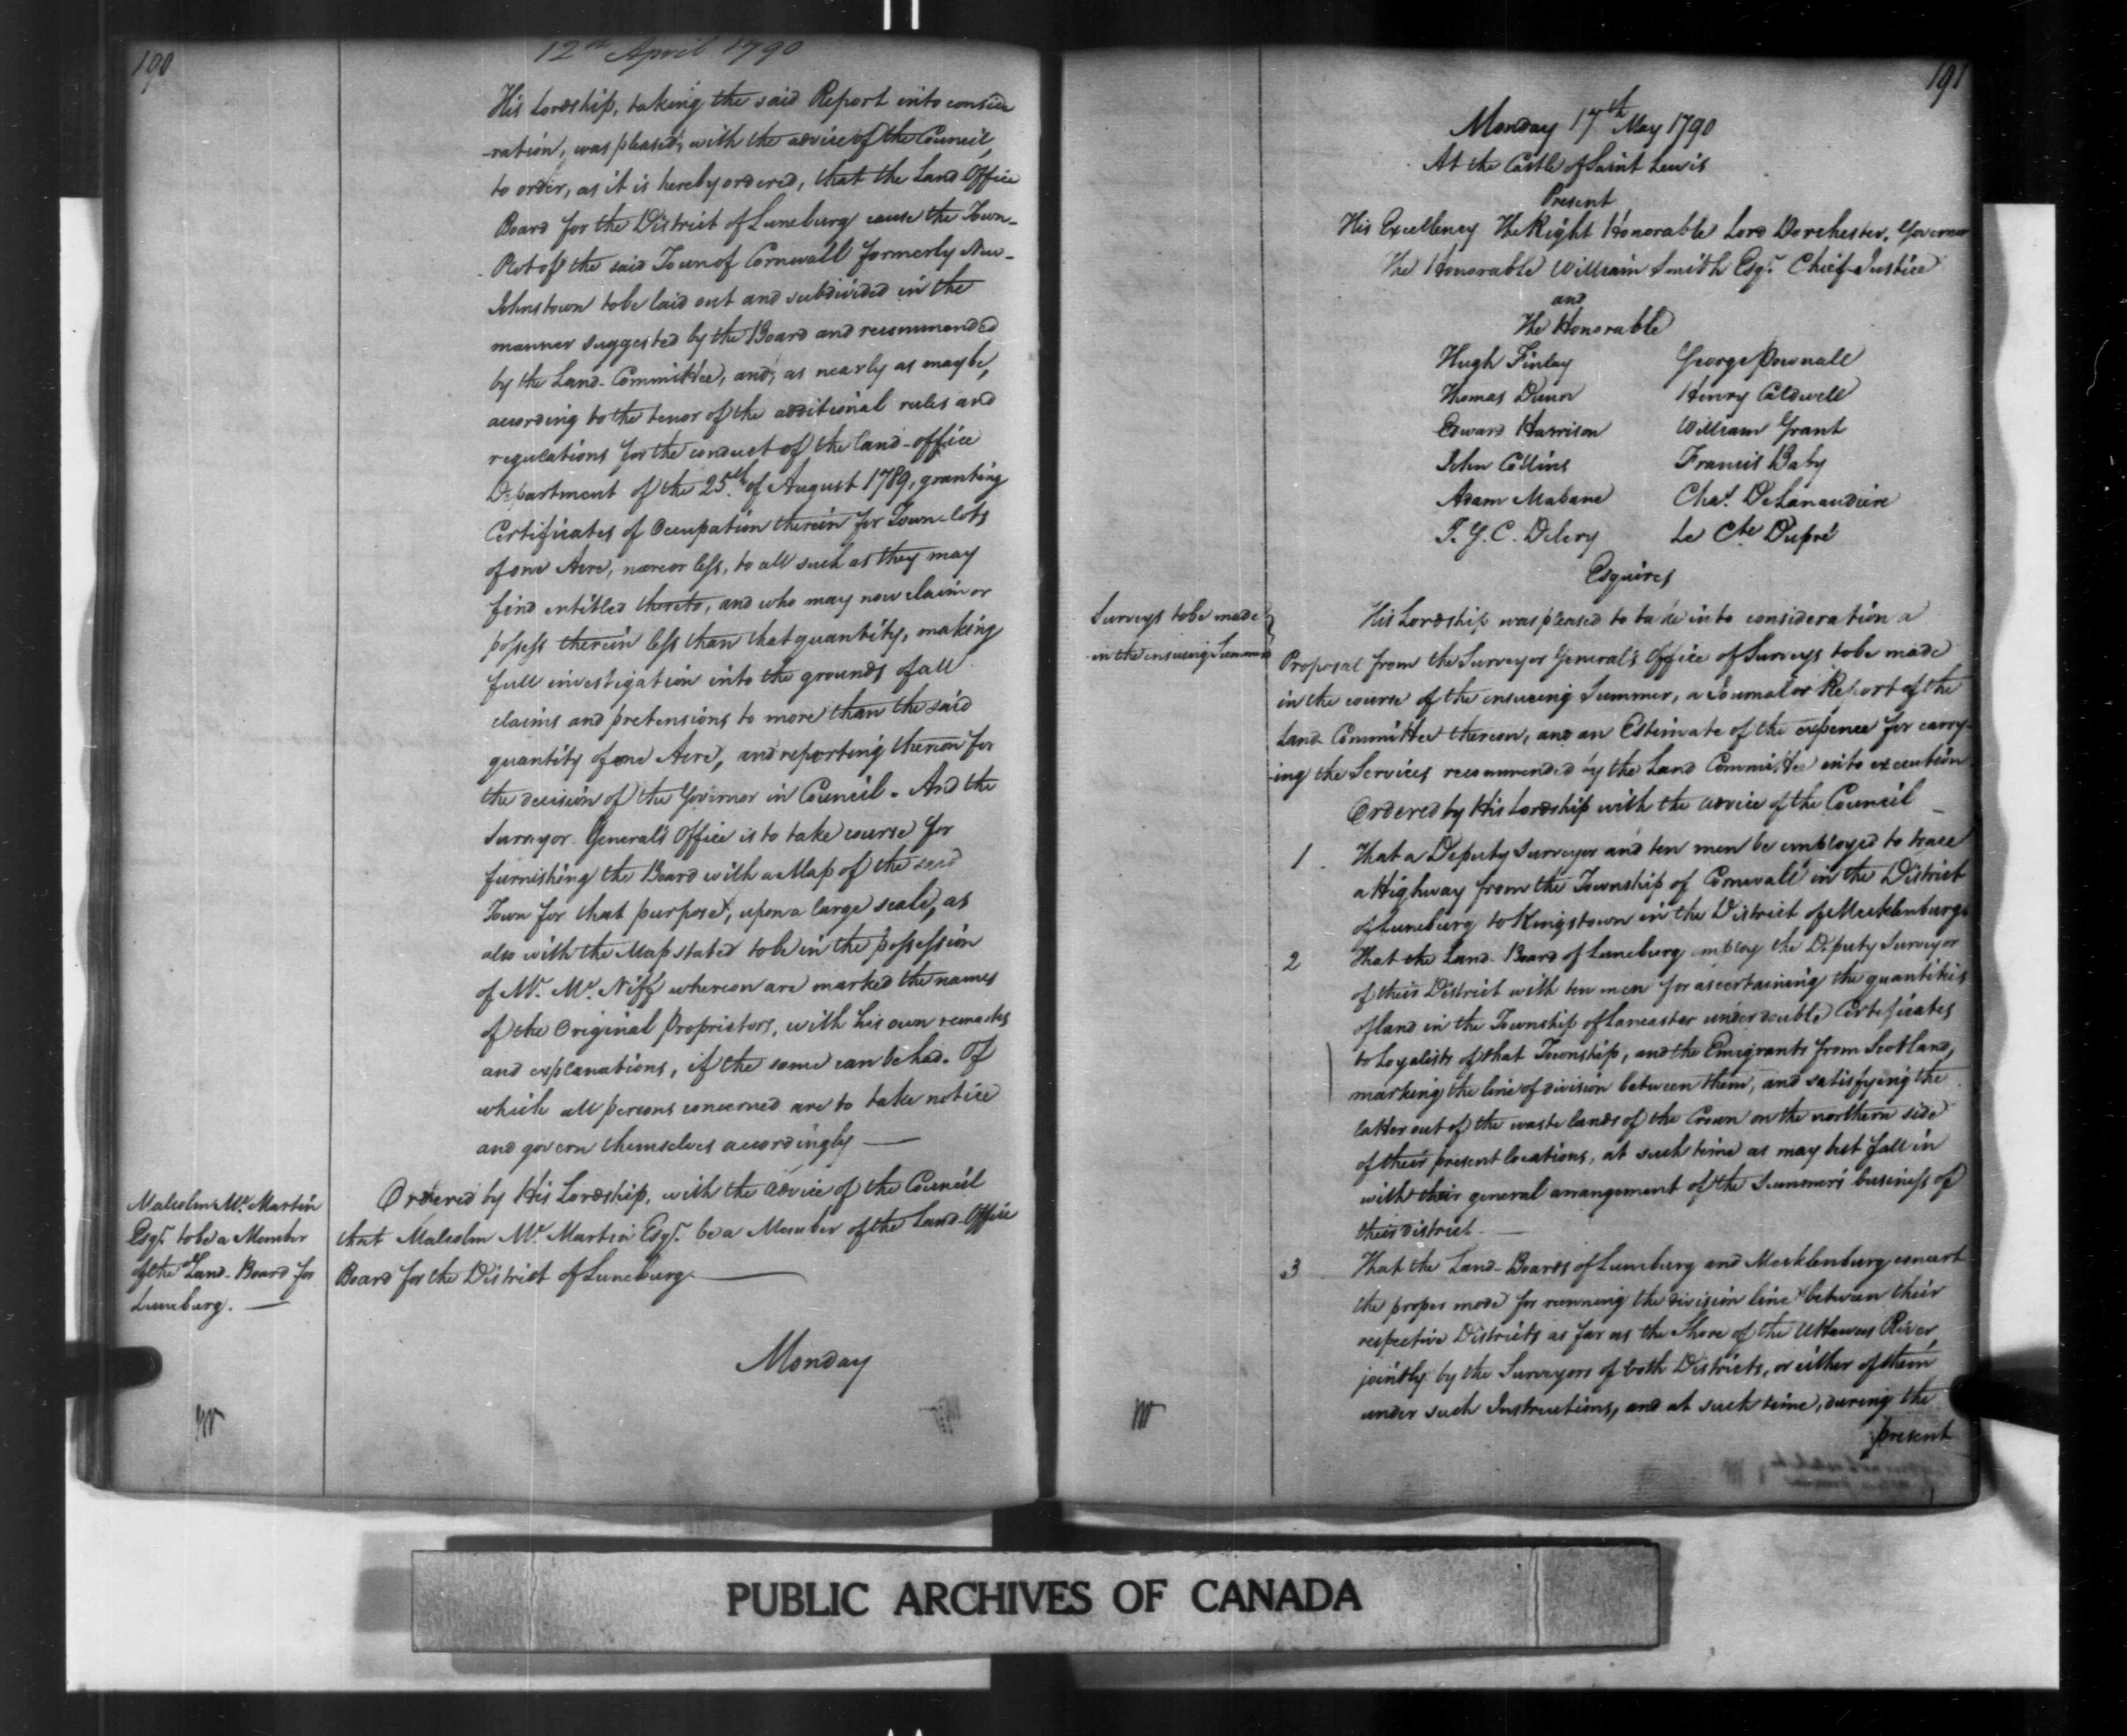 190
12th April 1790
His Lordship, taking the said Report into conside
-ration, was pleased, with the advice of the Council,
to order, as it is hereby ordered, that the Land Office
Board for the District of Luneburg cause the Town-
Plot of the said Town of Cornwall formerly New-
Johnstown to be laid out and subdivided in the
manner suggested by the Board and recommended
by the Land-Committee, and, as nearly as may be,
according to the tenor of the additional rules and
regulations for the conduct of the land-office
Department of the 25th of August 1789, granting
Certificates of Occupation therein for Town-lots
of one Acre, more or less, to all such as they may
find entitled thereto, and who may now claim or
possess therein less than that quantity, making
full investigation into the grounds of all
claims and pretensions to more than the said
quantity of one Acre, and reporting thereon for
the decision of the Governor in Council. And the
Surveyor General's Office is to take course for
furnishing the Board with a Map of the said
Town for that purpose, upon a large scale, as
also with the Map stated to be in the possession
of Mr. Mc. Niff whereon are marked the names
of the Original Proprietors, with his own remarks
and explanations, if the same can be had. Of
which all persons concerned are to take notice
and govern themselves accordingly —
Malcolm Mc. Martin
Esqr. to be a Member
of the Land-Board for
Luneburg. —
Ordered by His Lordship, with the advice of the Council
that Malcolm Mc. Martin Esqr. be a Member of the Land-Office
Board for the District of Luneburg. —
Monday
191
Monday 17th May 1790
At the Castle of Saint Lewis
Present
His Excellency The Right Honorable Lord Dorchester, Governor
The Honorable William Smith Esqr. Chief-Justice
and
The Honorable
Hugh Finlay George Pownall
Thomas Dunn Henry Caldwell
Edward Harrison William Grant
John Collins Francis Baby
Adam Mabane Chas. DeLanaudiere
J. G. C. Delery Le Cte Dupré
Esquires
Surveys to be made
in the ensuing Summer
His Lordship was pleased to take into consideration a
Proposal from the Surveyor General's Office of Surveys to be made
in the course of the ensueing Summer, a Journal or Report of the
Land-Committee thereon, and an Estimate of the expence for carry-
-ing the Services recommended by the Land Committee into execution
Ordered by His Lordship with the advice of the Council —
1. That a Deputy Surveyor and ten men be employed to trace
a Highway from the Township of Cornwall in the District
of Luneburg to Kingstown in the District of Mecklenburg.
2 That the Land-Board of Luneburg employ the Deputy Surveyor
of their District with ten men for ascertaining the quantities
of land in the Township of Lancaster under double Certificates
to Loyalists of that Township, and the Emigrants from Scotland,
marking the line of division between them, and satisfying the
latter out of the waste lands of the Crown on the northern side
of their present locations, at such time as may best fall in
with their general arrangement of the Summer's business of
their district. —
3 That the Land-Boards of Luneburg and Mecklenburg concert
the proper mode for running the division line between their
respective Districts as far as the Shore of the Uttawas River,
jointly by the Surveyors of both Districts, or either of them
under such Instructions, and at such time, during the
present
PUBLIC ARCHIVES OF CANADA